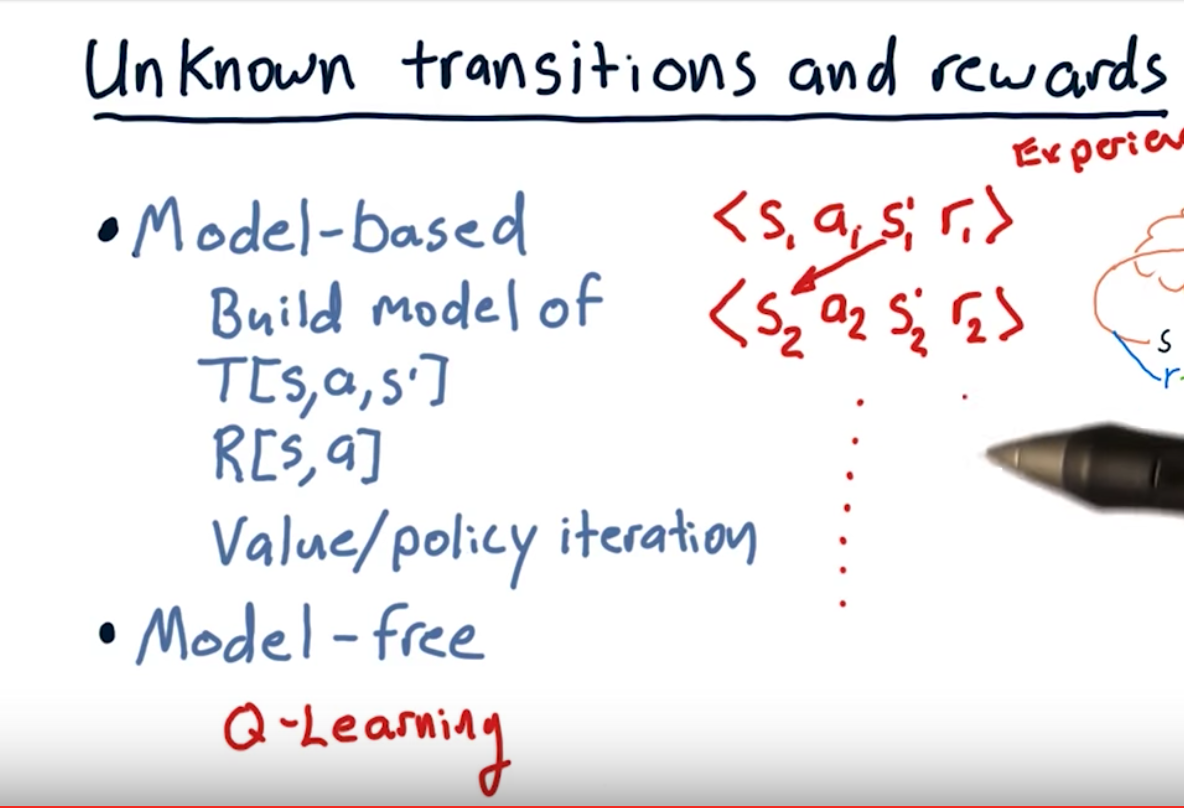 Unknown transitions and rewards
Experien
• Model-based
Build model of
T[s,a,s']
R[s,a]
Value/policy iteration
• Model-free
Q-Learning
<s₁ a₁ s'₁ r₁>
<s₂ a₂ s'₂ r₂>
s
r